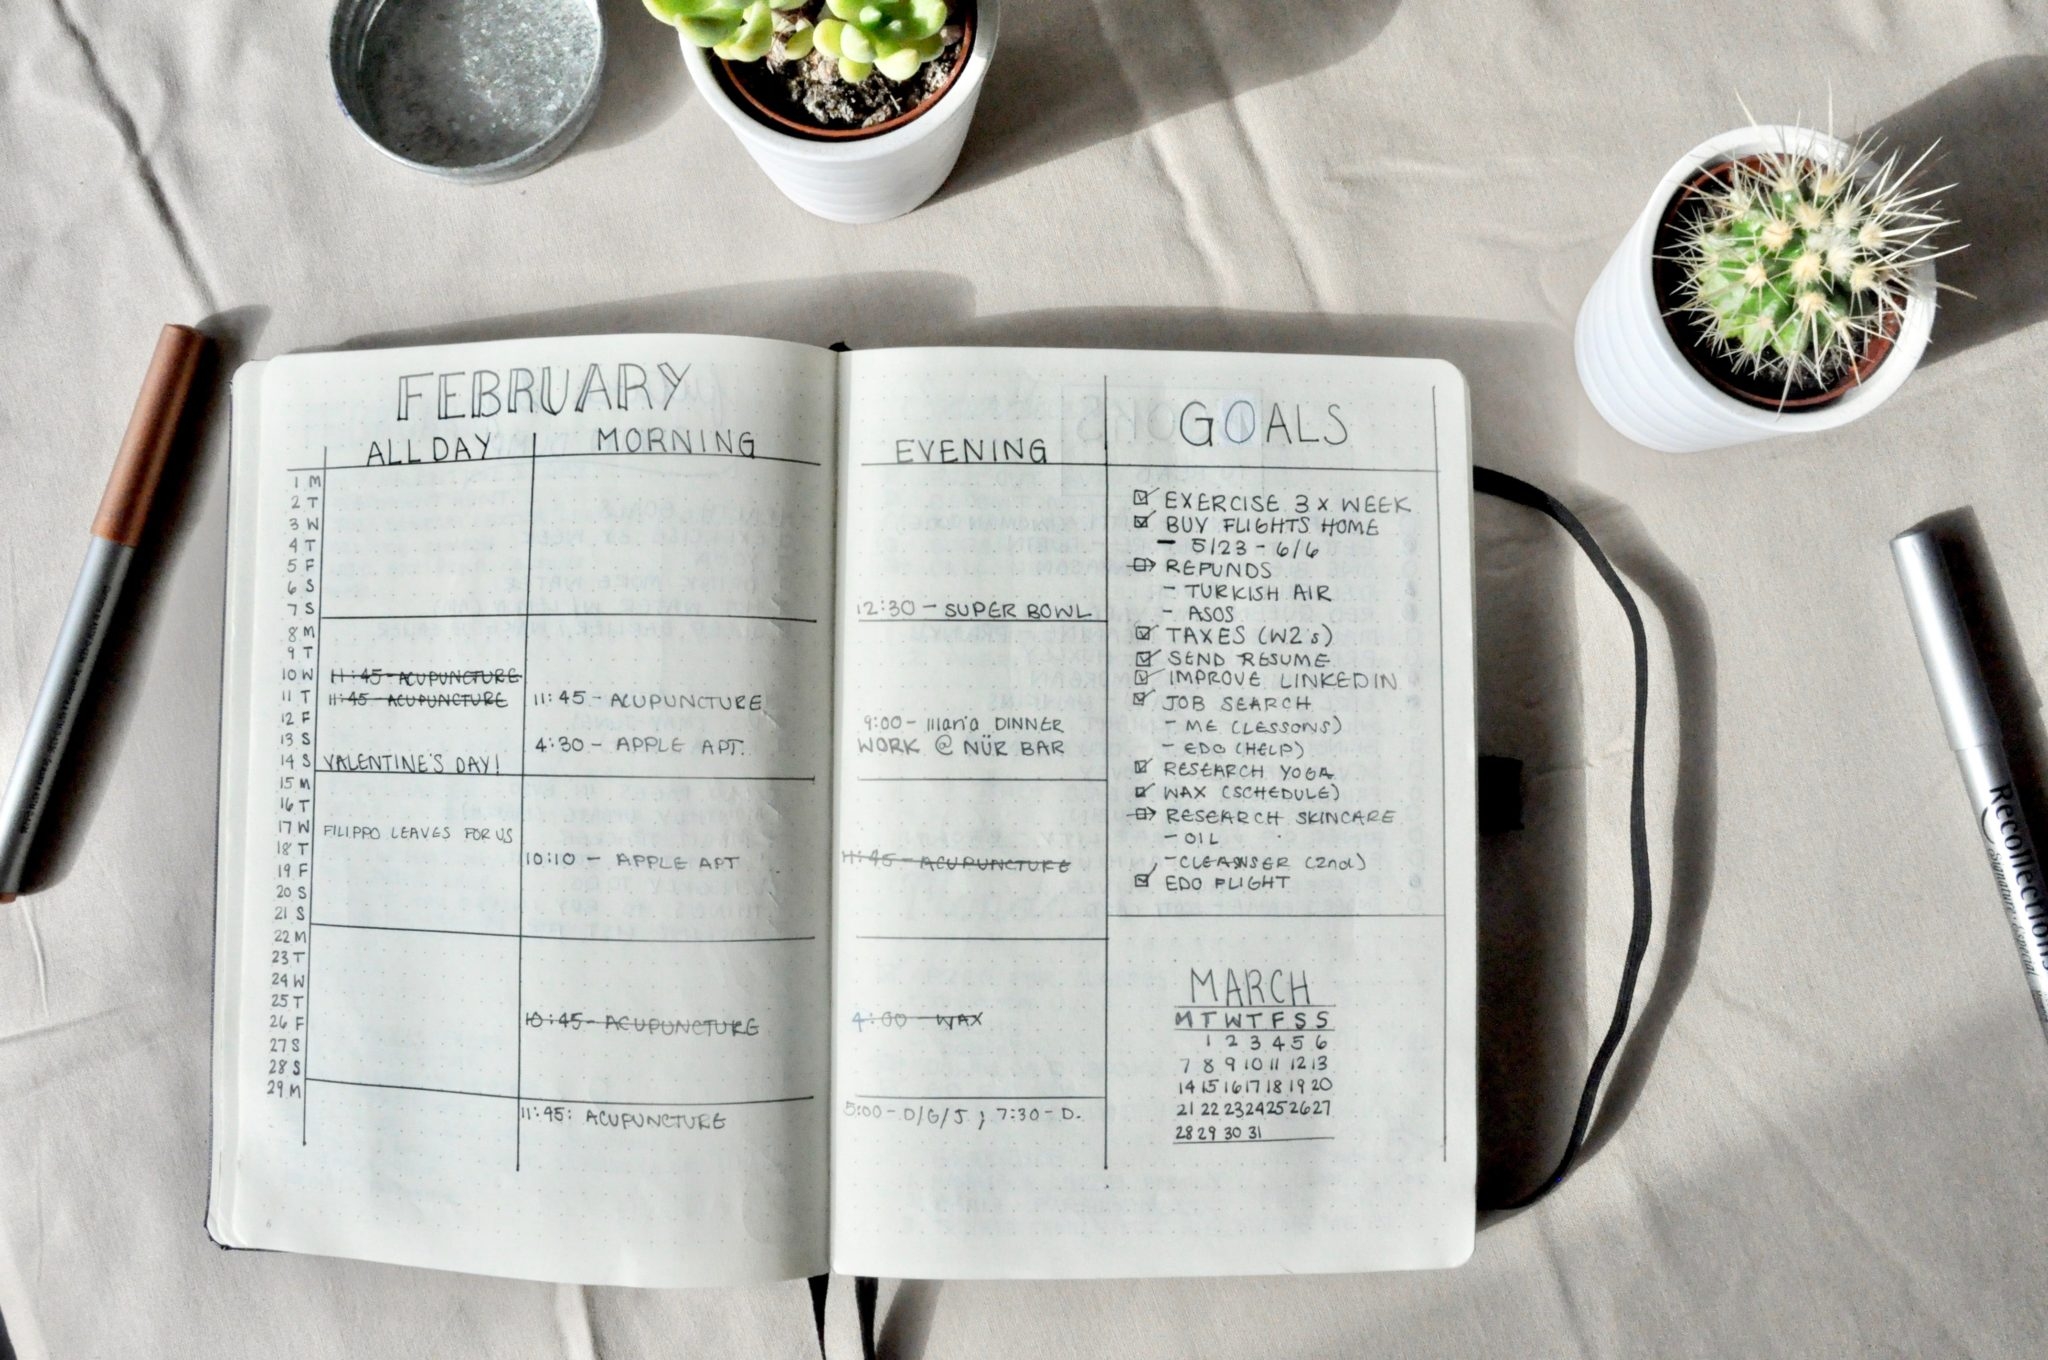 FEBRUARY
ALL DAY
MORNING
1 M
2 T
3 W
4 T
5 F
6 S
7 S
8 M
9 T
10 W 11:45 - ACUPUNCTURE
11 T 11:45 - ACUPUNCTURE 11:45 - ACUPUNCTURE
12 F
13 S 4:30 - APPLE APT.
14 S VALENTINE'S DAY!
15 M
16 T
17 W FILIPPO LEAVES FOR US
18 T 10:10 - APPLE APT
19 F
20 S
21 S
22 M
23 T
24 W
25 T
26 F 10:45 - ACUPUNCTURE
27 S
28 S
29 M
11:45: ACUPUNCTURE
EVENING
12:30 - SUPER BOWL
9:00 - Maria DINNER
WORK @ NÜR BAR
11:45 - ACUPUNCTURE
4:00 - WAX
5:00 - D/G/J ; 7:30 - D.
GOALS
EXERCISE 3 x WEEK
BUY FLIGHTS HOME
- 5/23 - 6/6
REFUNDS
- TURKISH AIR
- ASOS
TAXES (W2's)
SEND RESUME
IMPROVE LINKEDIN
JOB SEARCH
- ME (LESSONS)
- EDO (HELP)
RESEARCH YOGA
WAX (SCHEDULE)
RESEARCH SKINCARE
- OIL
- CLEANSER (2nd)
EDO FLIGHT
MARCH
M T W T F S S
1 2 3 4 5 6
7 8 9 10 11 12 13
14 15 16 17 18 19 20
21 22 23 24 25 26 27
28 29 30 31
6
7
Recollections
Signature